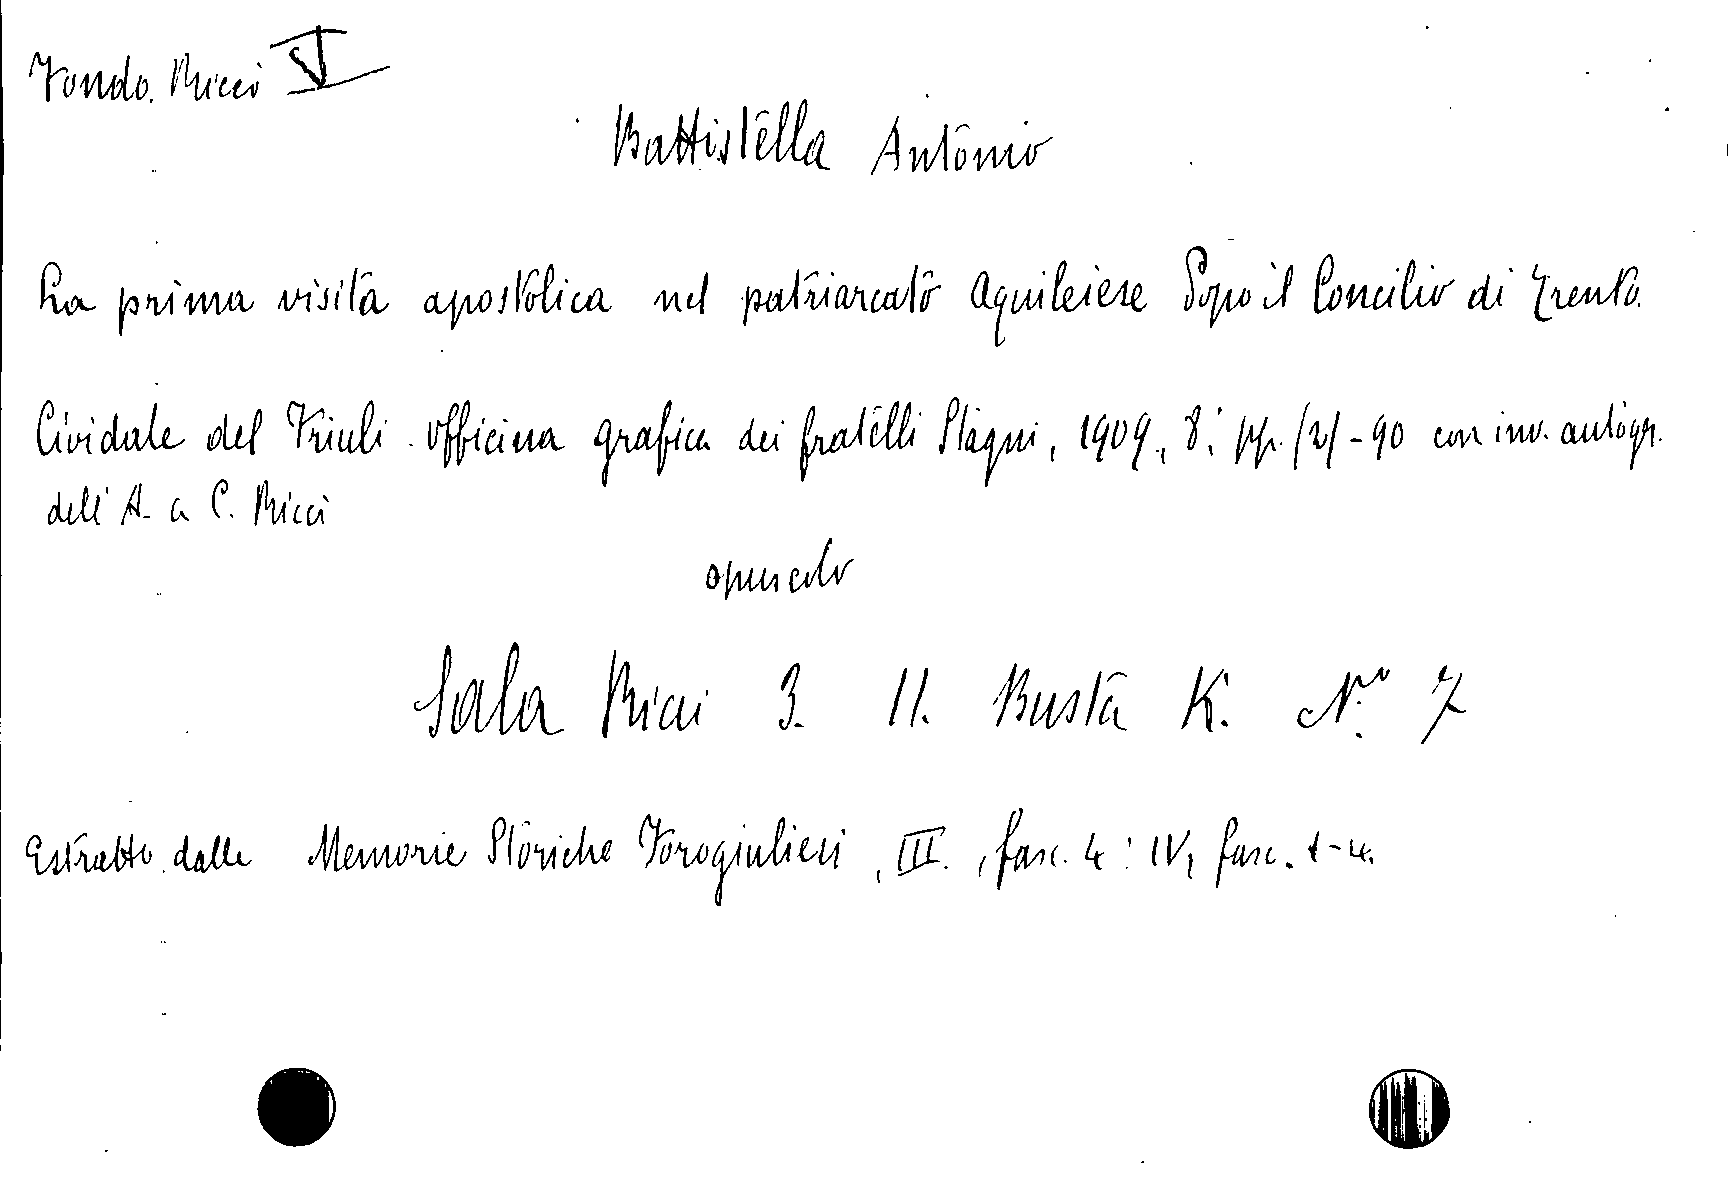 Fondo. Ricci V
Battistella Antonio
La prima visita apostolica nel patriarcato Aquileiese Dopo il Concilio di Trento.
Cividale del Friuli. Officina grafica dei fratelli Stagni, 1909, 8° pp. (2)-90 con inv. autogr.
dell'A. a C. Ricci
opuscolo
Sala Ricci 3. 11. Busta K. N.° 7
Estratto dalle Memorie Storiche Forogiuliesi, III., fasc. 4: IV, fasc. 1-4.